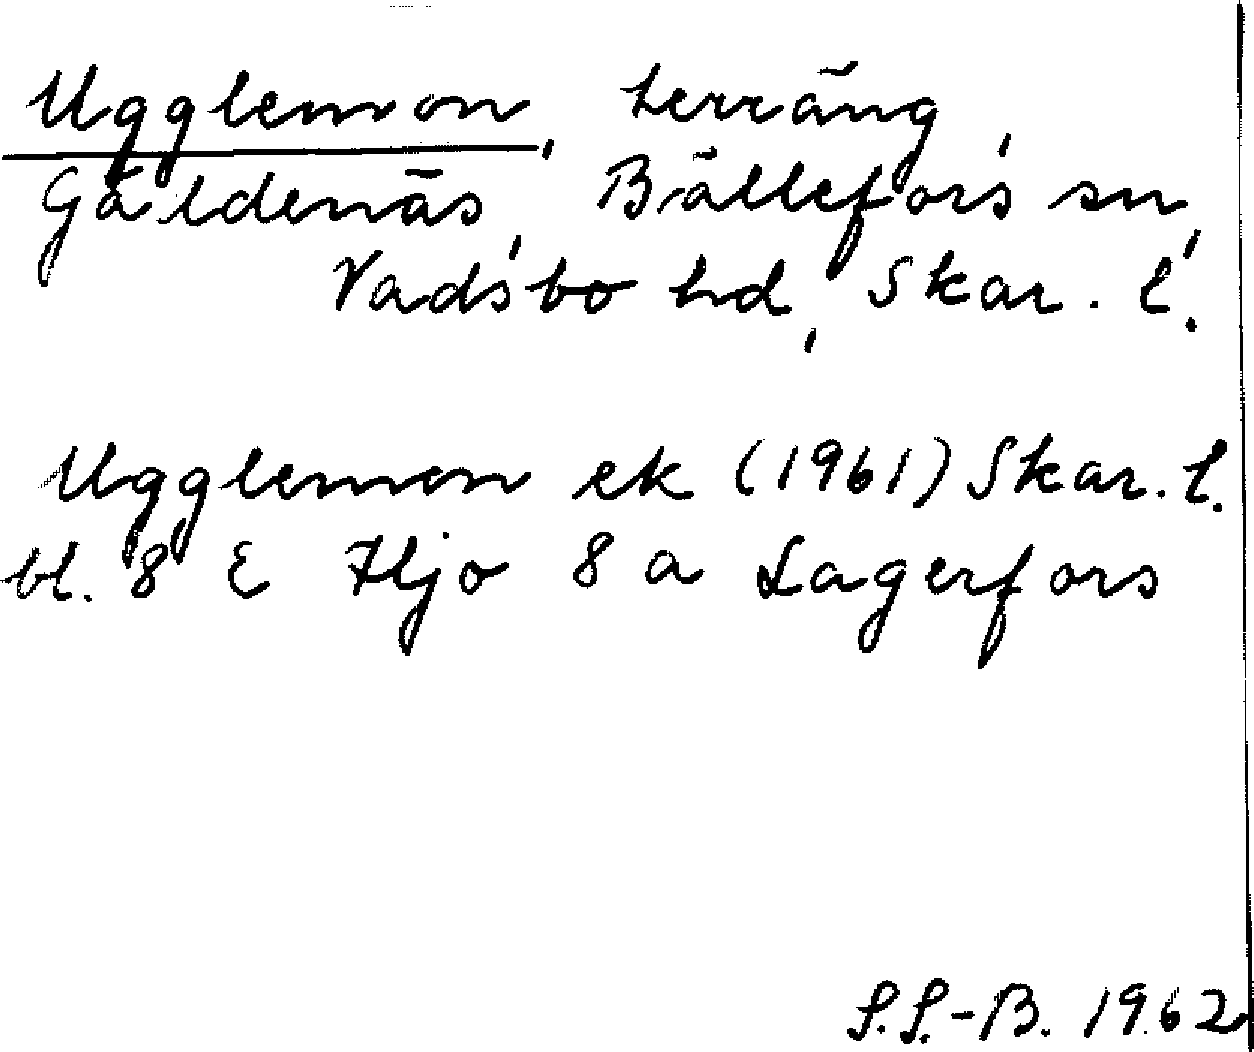 Ugglemon, terräng,
Gåldenäs, Bällefors sn,
Vadsbo hd, Skar. l.
Ugglemon ek (1961) Skar. l.
bl. 8 E Hjo 8 a Lagerfors
S.S.-B. 1962